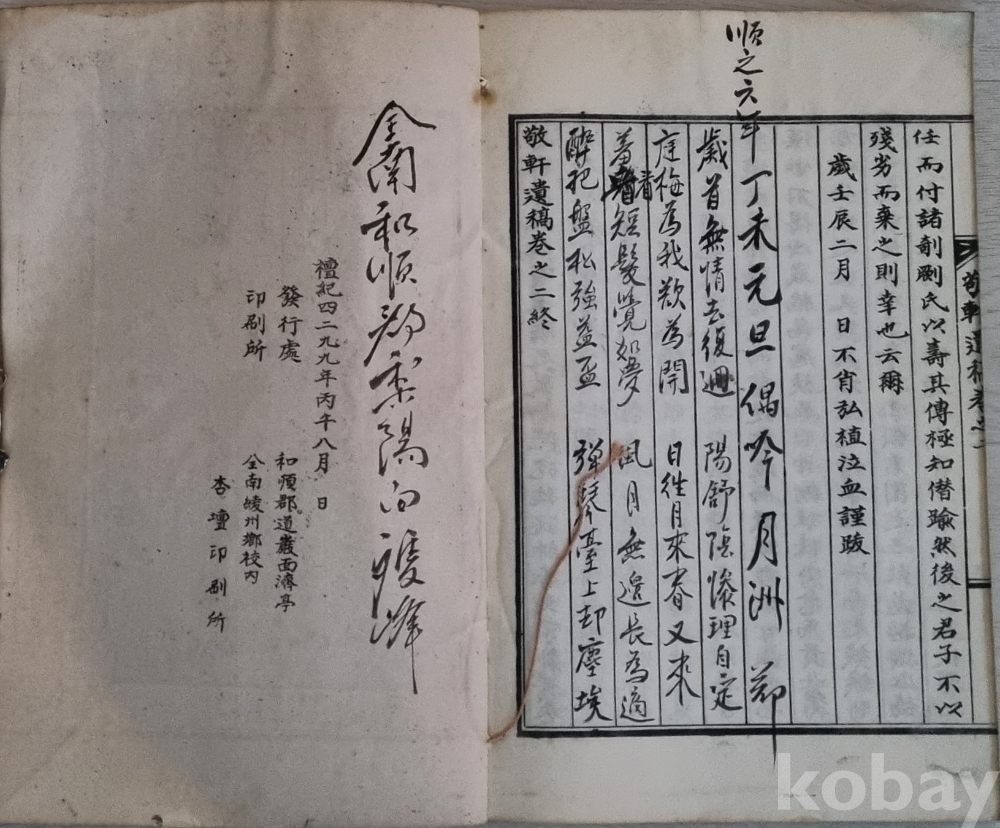 任而付諸剞劂氏以壽其傳極知僭踰然後之君子不以
殘劣而棄之則幸也云爾
歲壬辰二月 日不肖弘植泣血謹跋
順之六年丁未元旦偶吟 月洲 鄭
歲首無情去復廻 陽舒陰慘理自定
庭梅為我欲為開 日往月來春又來
羞看短髮覺如夢 風月無邊長為適
醉把盤松強益盃 彈琴臺上却塵埃
敬軒遺稿卷之二終
敬軒遺稿卷之二
全南和順郡梨陽面
檀紀四二九九年丙午八月 日
發行處 和順郡道巖面濟亭
印刷所 全南綾州鄉校內
杏壇印刷所
kobay